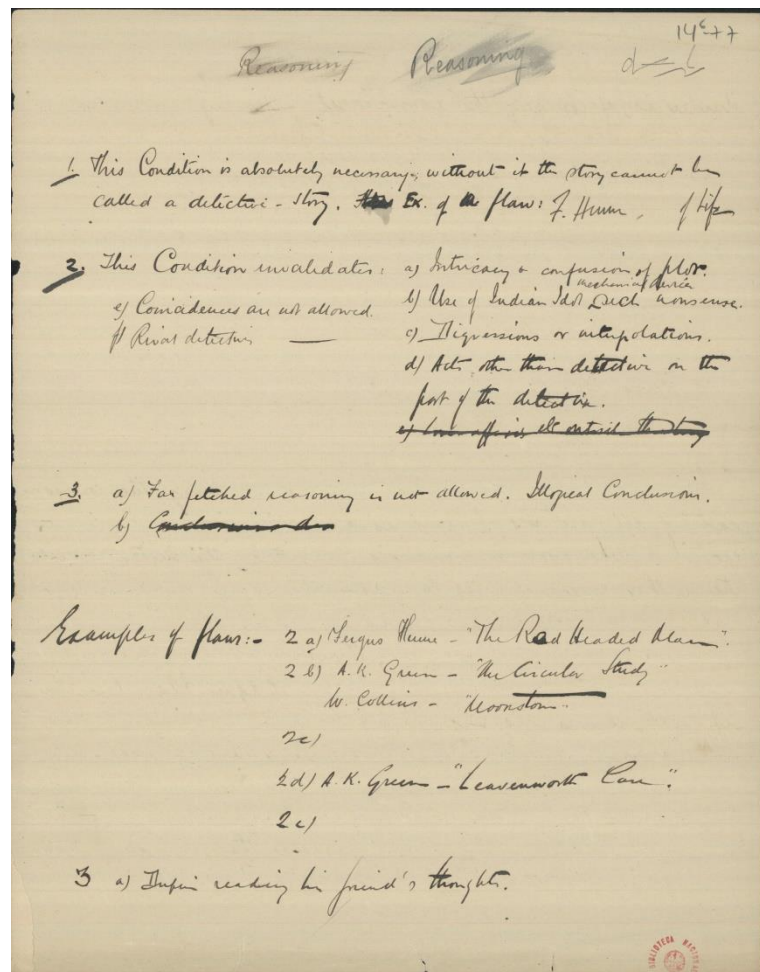 14⁶-77
Reasoning Reasoning
1. This Condition is absolutely necessary; without it the story cannot be
called a detective-story. Ex. of flaw: F. Hume, of Life
2. This Condition invalidates: a) Intricacy & confusion of plot.
mechanical devices
b) Use of Indian Idol such nonsense.
e) Coincidences are not allowed.
c) Digressions or interpolations.
f) Rival detectives —
d) Acts other than detective on the
part of the detective.
e) Love affairs etc outside the story
3. a) Far fetched reasoning is not allowed. Illogical Conclusions.
b) Conclusions
Examples of flaws:- 2 a) Fergus Hume - "The Red Headed Man".
2 b) A. K. Green - "The Circular Study"
W. Collins - "Moonstone".
2c)
2d) A. K. Green - "Leavenworth Case".
2e)
3 a) Dupin reading his friend's thoughts.
BIBLIOTECA NACIONAL